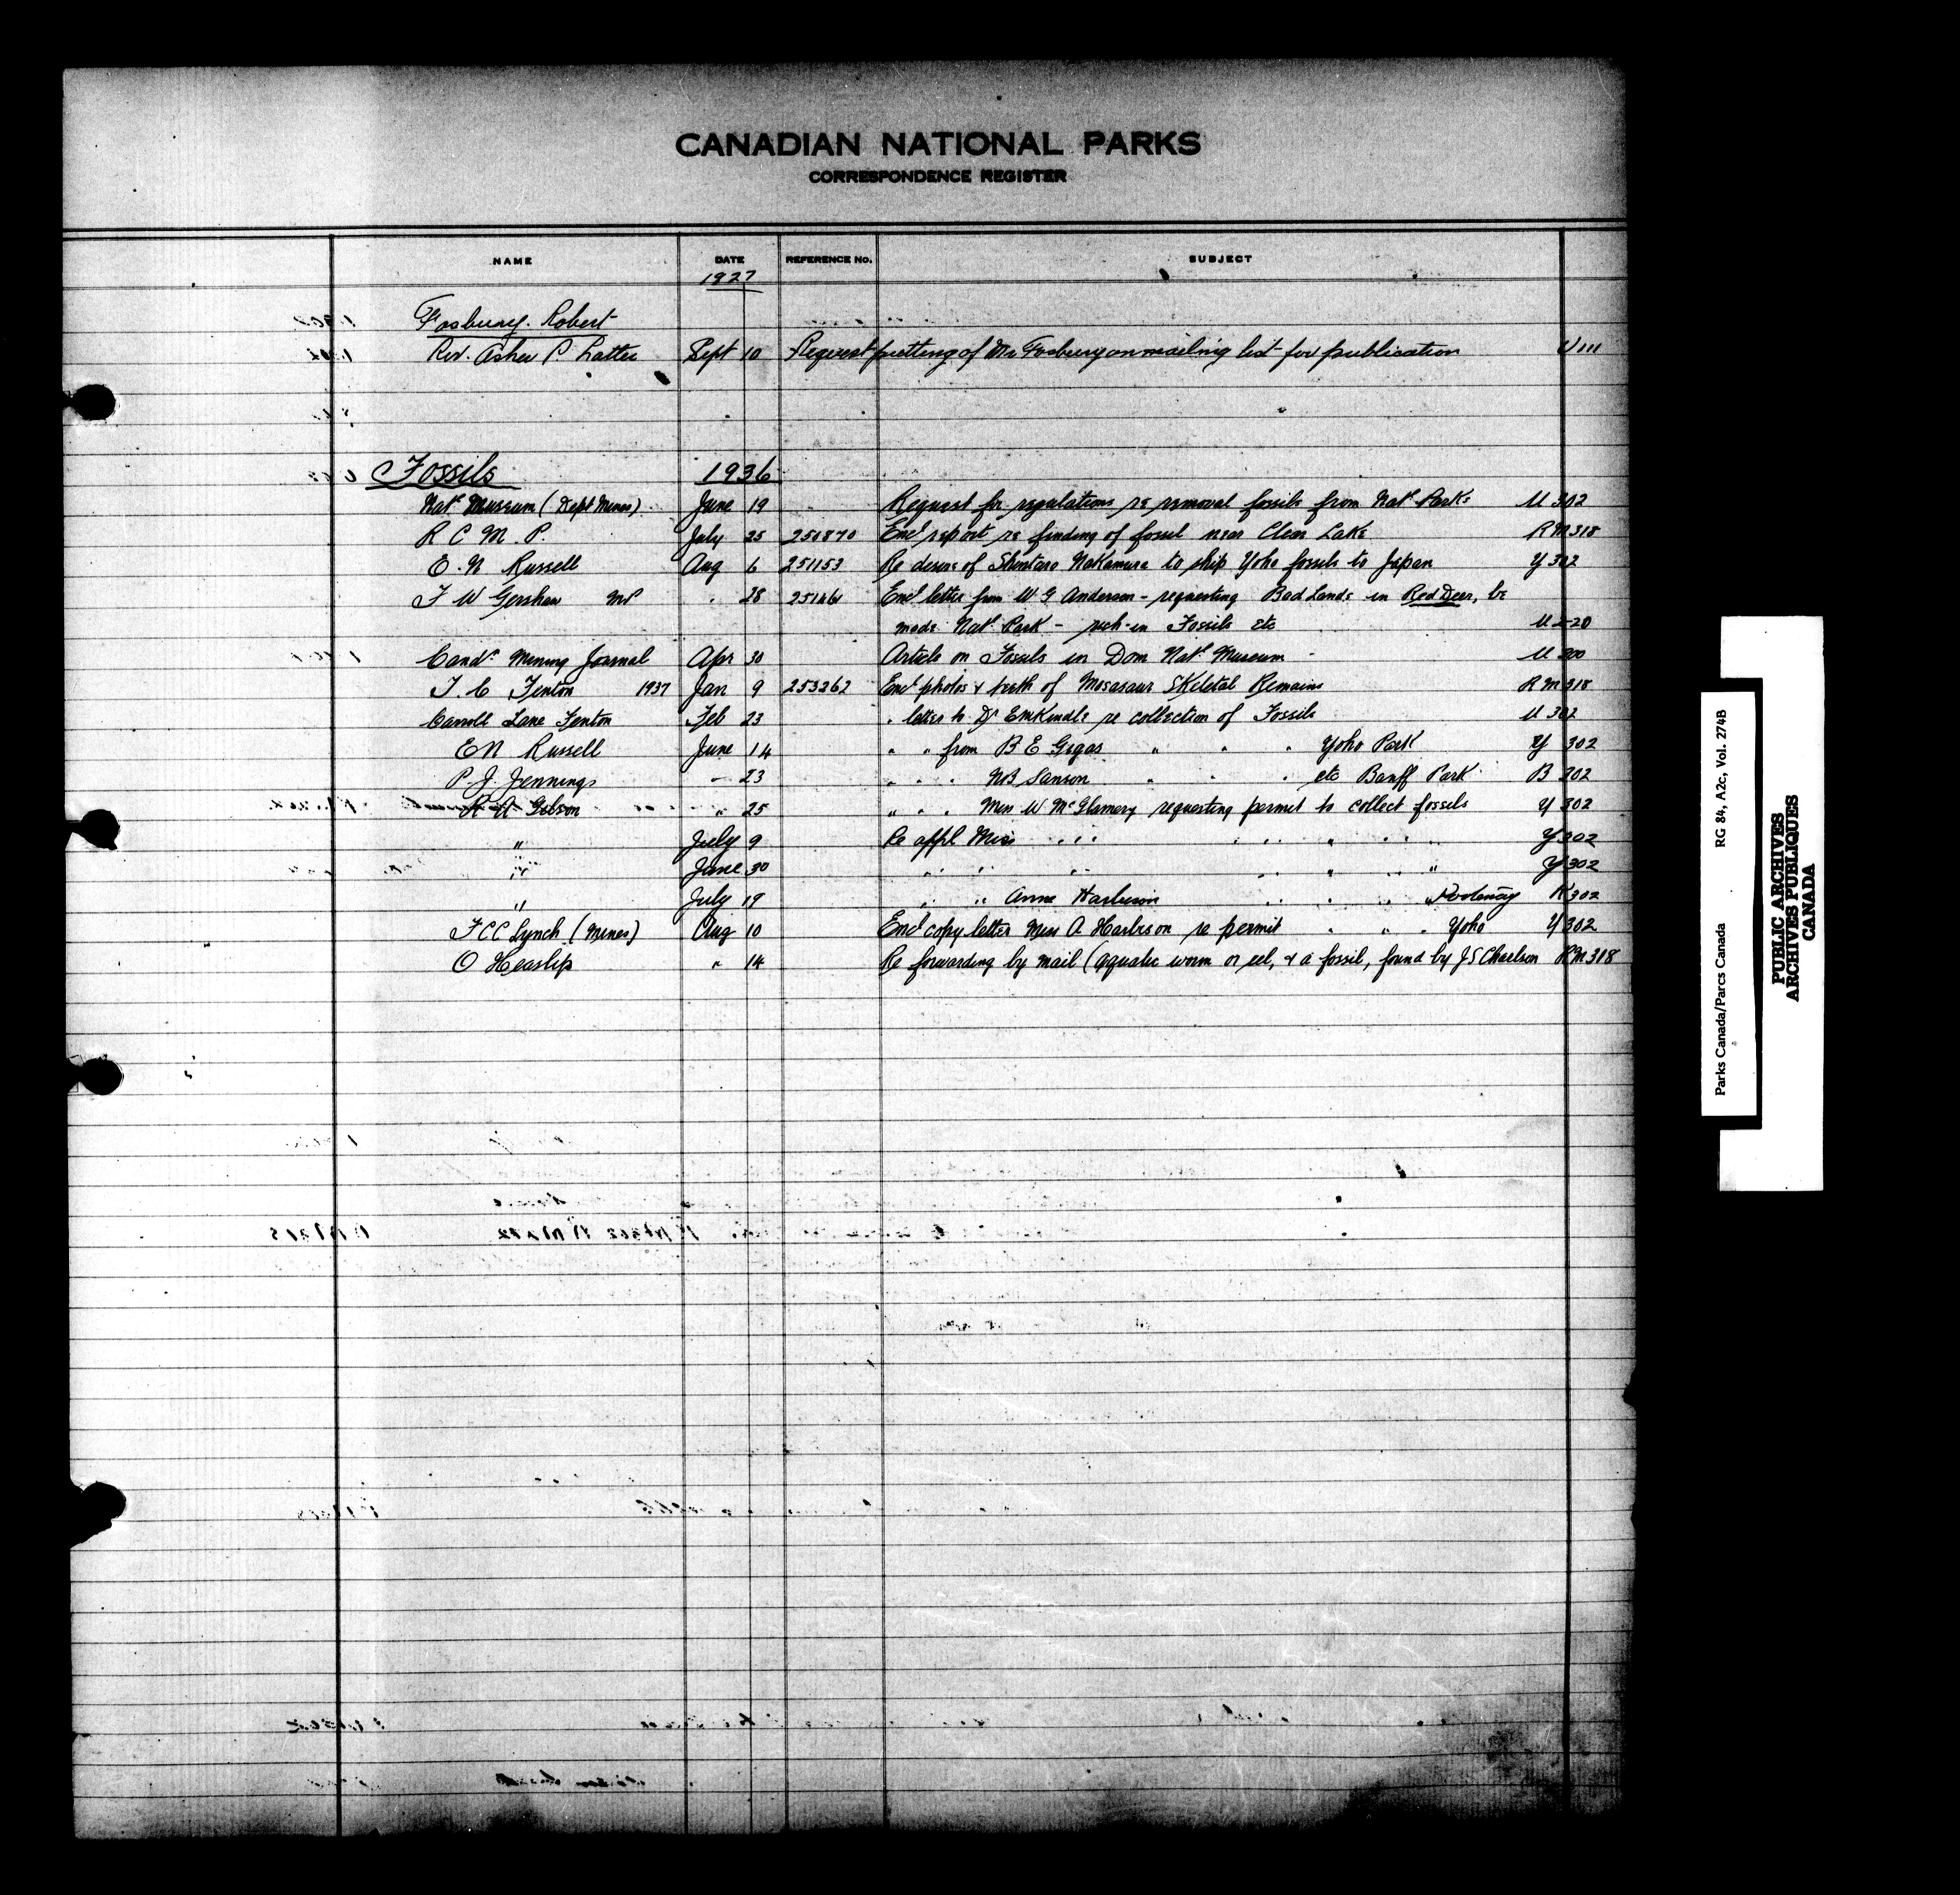 CANADIAN NATIONAL PARKS
CORRESPONDENCE REGISTER
NAME DATE REFERENCE No. SUBJECT
1927
Fosbury. Robert
Rev. Asher P Latter Sept 10 Request putting of Mr Fosbury on mailing list for publication U111
Fossils 1936
Natl Museum (Dept Mines) June 19 Request for regulations re removal fossils from Natl Parks U 302
R C M. P. July 25 250870 Encl report re finding of fossil near Clear Lake RM318
E. N Russell Aug 6 251153 Re desire of Shintaro Nakamura to ship Yoho fossils to Japan Y 302
F W Gershaw MP " 28 251461 Encl letter from W G Anderson - requesting Bad Lands in Red Deer, be
made Natl Park - rich in Fossils etc U 2-20
Candn Mining Journal Apr 30 Article on Fossils in Dom Natl Museum U 300
T. C Fenton 1937 Jan 9 253262 Encl photos & teeth of Mosasaur Skeletal Remains RM318
Carroll Lane Fenton Feb 23 " letter to Dr EMKindle re collection of Fossils U 302
E N Russell June 14 " " from B E Gegas " " " Yoho Park Y 302
P. J. Jennings " 23 " " " NB Sanson " " " etc Banff Park B 302
R A Gibson " 25 " " " Miss W McGlamery requesting permit to collect fossils Y 302
" July 9 Re appl Miss " " " " " " " " " Y 302
" June 30 " " " " " " " " " Y 302
" July 19 " " Anne Harbison " " " " " Kootenay K 302
F C C Lynch (Mines) Aug 10 Encl copy letter Miss A Harbison re permit " " " Yoho Y 302
O Heaslip " 14 Re forwarding by mail (aquatic worm or eel, & a fossil, found by J S Charlson RM318
Parks Canada/Parcs Canada RG 84, A2c, Vol. 274B
PUBLIC ARCHIVES
ARCHIVES PUBLIQUES
CANADA